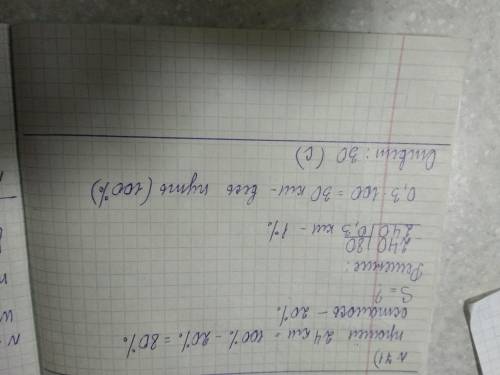 № 71)
прошёл 24 км = 100% - 20% = 80%
осталось - 20%.
S = ?
Решение:
240 | 80
240 | 0,3 км - 1%
0,3 · 100 = 30 км - весь путь (100%)
Ответ: 30 (С)